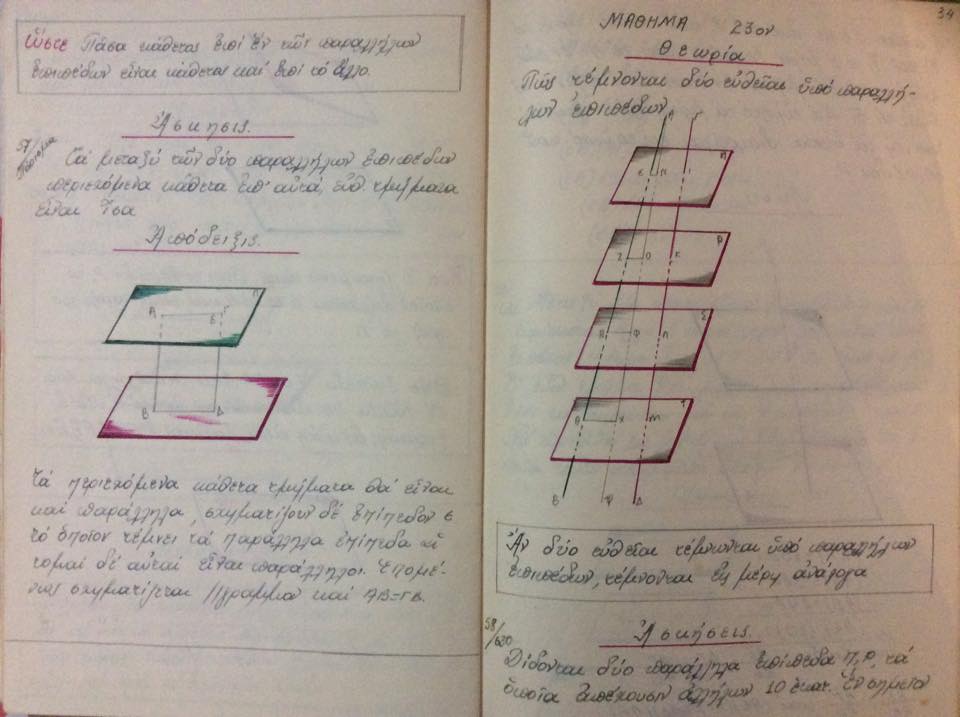 ὥστε Πᾶσα κάθετος ἐπί ἕν τῶν παραλλήλων
ἐπιπέδων εἶναι κάθετος καί ἐπί τό ἄλλο.
Ἀσκήσις.
57/
Πόρισμα
Τά μεταξύ τῶν δύο παραλλήλων ἐπιπέδων
περιεχόμενα κάθετα ἐπ' αὐτά εὐθ τμήματα
εἶναι ἴσα
Ἀπόδειξις.
Π
Α Γ
Ε
Β Δ
Τά περιεχόμενα κάθετα τμήματα θά εἶναι
καί παράλληλα, σχηματίζουν δέ ἐπίπεδον ε
τό ὁποῖον τέμνει τά παράλληλα ἐπίπεδα αἱ
τομαί δέ αὐταί εἶναι παράλληλοι. Ἑπομέ-
νως σχηματίζεται //γραμμον καί ΑΒ=ΓΔ.
34
ΜΑΘΗΜΑ 23ον
Θεωρία
Πῶς τέμνονται δύο εὐθεῖαι ὑπό παραλλή-
λων ἐπιπέδων
Α Γ
Π
Ε Π Ι
Ρ
Ζ Ο Κ
Σ
Η Φ Λ
Τ
Θ Χ Μ
Β Ψ Δ
Ἄν δύο εὐθεῖαι τέμνωνται ὑπό παραλλήλων
ἐπιπέδων, τέμνονται εἰς μέρη ἀνάλογα
Ἀσκήσεις.
58/
620
Δίδονται δύο παράλληλα ἐπίπεδα Π, Ρ, τά
ὁποῖα ἀπέχουσιν ἀλλήλων 10 ἑκατ. Ἕν σημεῖον